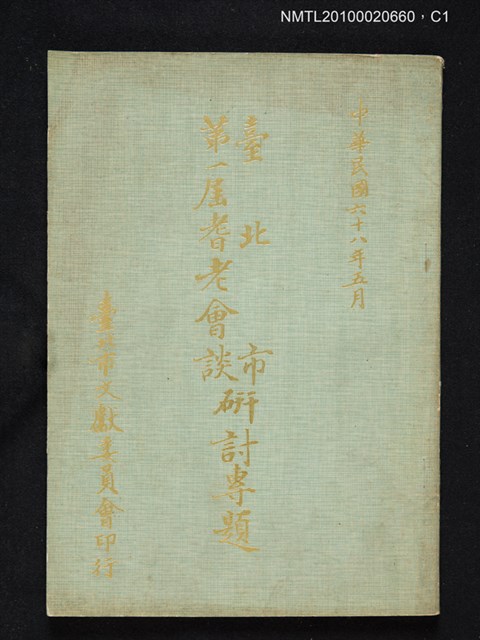 NMTL20100020660，C1
中華民國六十八年五月
臺北市
第一屆耆老會談研討專題
臺北市文獻委員會印行